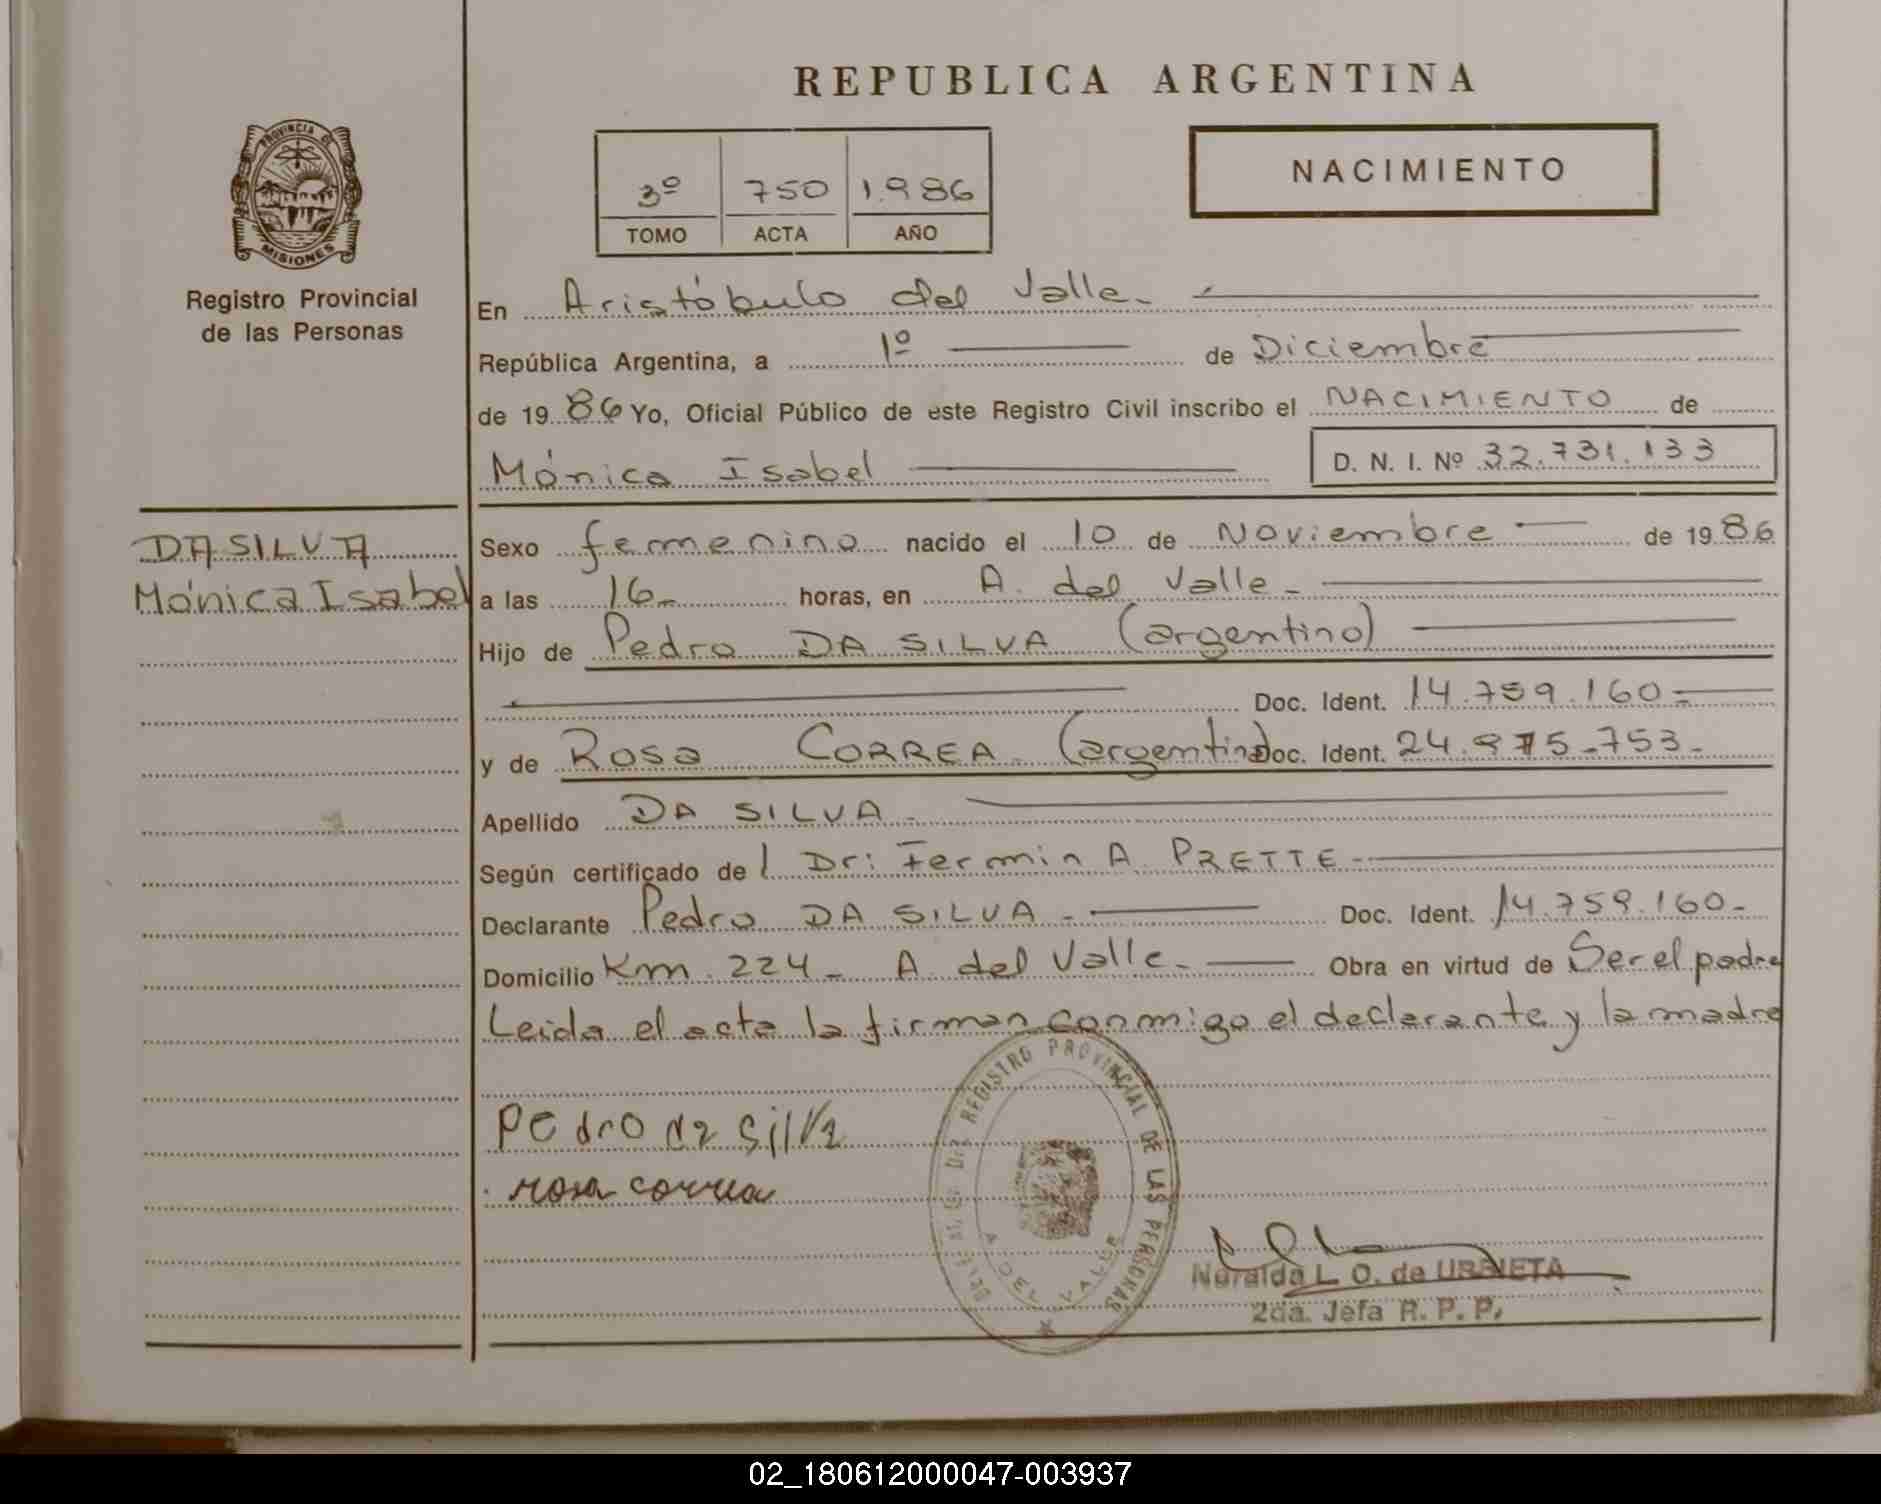 REPUBLICA ARGENTINA
PROVINCIA DE
MISIONES
Registro Provincial
de las Personas
3º 750 1.986
TOMO ACTA AÑO
NACIMIENTO
En Aristóbulo del Valle.-
República Argentina, a 1º de Diciembre
de 19 86 Yo, Oficial Público de este Registro Civil inscribo el NACIMIENTO de
Mónica Isabel D. N. I. Nº 32.731.133
DA SILVA
Mónica Isabel
Sexo femenino nacido el 10 de Noviembre de 19 86
a las 16.- horas, en A. del Valle.-
Hijo de Pedro DA SILVA (argentino)
Doc. Ident. 14.759.160.-
y de Rosa CORREA (argentina) Doc. Ident. 24.975.753.-
Apellido DA SILVA.-
Según certificado de l Dr: Fermin A. PRETTE.-
Declarante Pedro DA SILVA.- Doc. Ident. 14.759.160.-
Domicilio Km. 224- A. del Valle.- Obra en virtud de Ser el padre
Leida el acta la firman conmigo el declarante y la madre
PEdro da Silva
rosa correa
REGISTRO PROVINCIAL DE LAS PERSONAS
A. DEL VALLE
Neralda L. O. de URBIETA
2da. Jefa R. P. P.
02_180612000047-003937